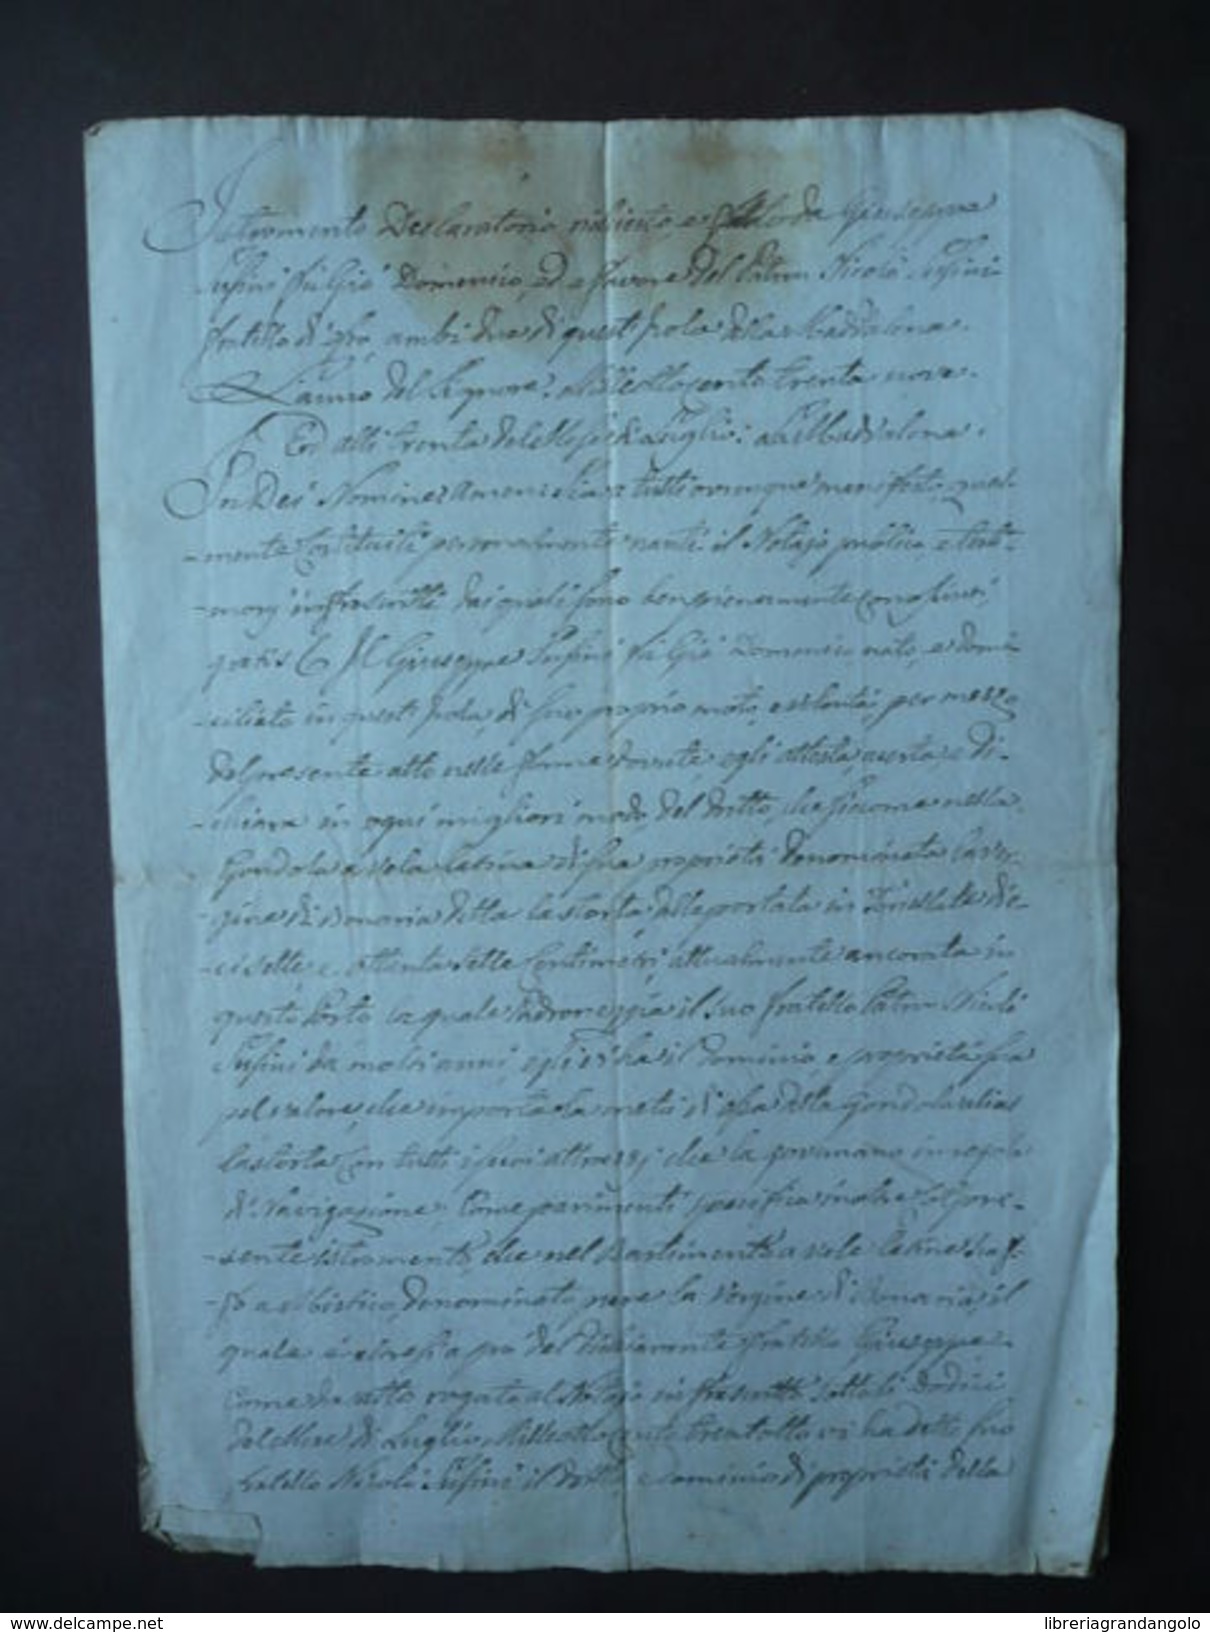 Istromento Declaratorio Giuseppe
Susini fu Giò Domenico, ed a favore del Patron Nicolò Susini
fratello di ambi due di quest'Isola della Maddalena.
L'anno del Signore Mille otto cento trenta nove.
Ed alli trenta del Mese di Luglio: alla Maddalena.
In Dei Nomine Amen: Sia a tutti ovunque manifesto, qual-
-mente personalmente nanti il Notajo publico, e testi-
-monj infrascritti dai quali sono ben pienamente conosciuti,
Giuseppe Susini fu Giò Domenico nato, e domi
-ciliato in quest'Isola, di suo proprio moto, e volontà, per mezzo
del presente atto nelle forme dovute, egli attesta, accerta, e di-
-chiara in ogni migliori modo del dritto, che siccome nella
Gondola a vela latina di sua proprietà denominata la Ver-
-gine di Bonaria detta la storta, della portata in Tonellate die-
-cisette, e ottanta sette Centimetri, attualmente ancorata in
questo Porto la quale Padroneggia il suo fratello Patron Nicolò
Susini da molti anni, egli vi ha il dominio, e proprietà
pel valore, che importa la metà di essa detta Gondola alias
la storta con tutti i suoi attrezzj che la governano in regola
di Navigazione; Come parimenti specifica inoltre
-sente istromento, che nel Bastimento a vele latine
denominato, pure la Vergine di Bonaria, il
quale del dichiarante fratello Giuseppe
Come da atto rogato al Notajo infrascritto sotto li dodici
del Mese di Luglio, Mille otto cento trentotto vi ha detto suo
fratello Nicolò Susini il dritto, e dominio di proprietà della
www.delcampe.net
libreriagrandangolo